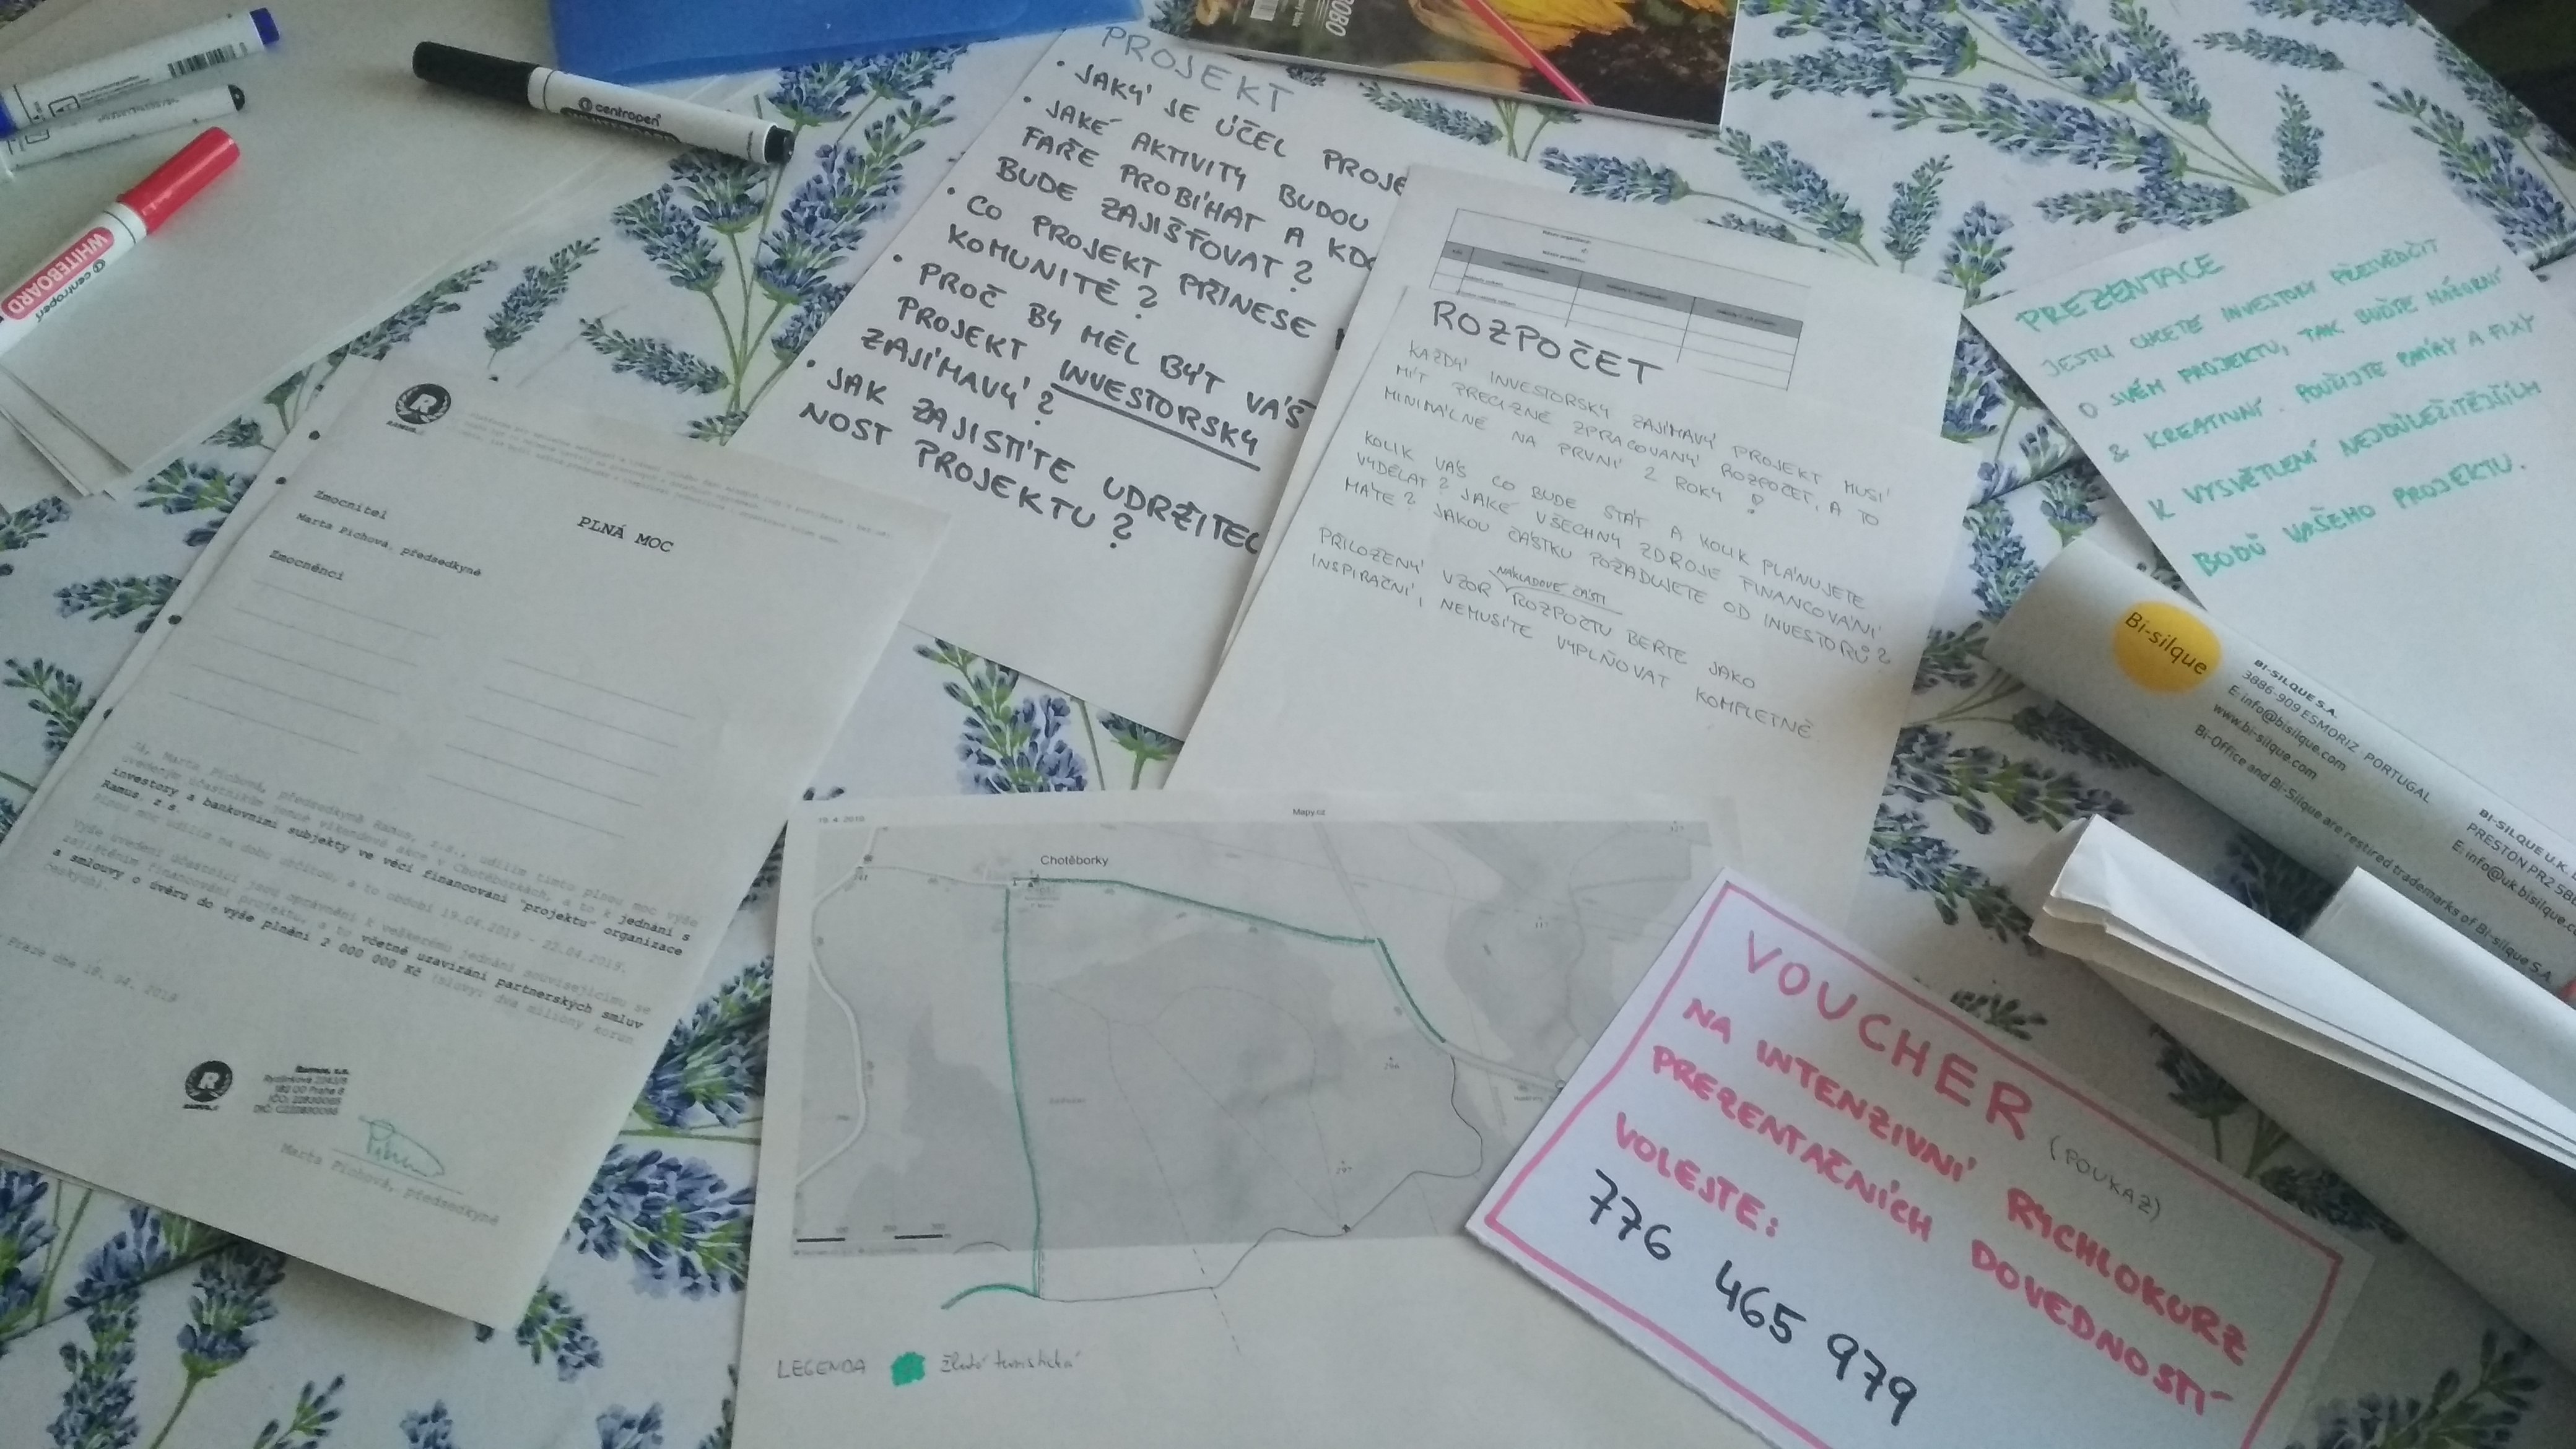 centropen
WHITEBOARD
centropen
PROJEKT
• JAKÝ JE ÚČEL PROJE
• JAKÉ AKTIVITY BUDOU
FAŘE PROBÍHAT A KDO
BUDE ZAJIŠŤOVAT?
• CO PROJEKT PŘINESE
KOMUNITĚ?
• PROČ BY MĚL BÝT VÁŠ
PROJEKT INVESTORSKY
ZAJÍMAVÝ?
• JAK ZAJISTÍTE UDRŽITEL
NOST PROJEKTU?
ROZPOČET
KAŽDÝ INVESTORSKY ZAJÍMAVÝ PROJEKT MUSÍ
MÍT PRECIZNĚ ZPRACOVANÝ ROZPOČET, A TO
MINIMÁLNĚ NA PRVNÍ 2 ROKY!
KOLIK VÁS CO BUDE STÁT A KOLIK PLÁNUJETE
VYDĚLAT? JAKÉ VŠECHNY ZDROJE FINANCOVÁNÍ
MÁTE? JAKOU ČÁSTKU POŽADUJETE OD INVESTORŮ?
PŘILOŽENÝ VZOR NÁKLADOVÉ ČÁSTI ROZPOČTU BERTE JAKO
INSPIRAČNÍ, NEMUSÍTE VYPLŇOVAT KOMPLETNĚ.
PREZENTACE
JESTLI CHCETE INVESTORY PŘESVĚDČIT
O SVÉM PROJEKTU, TAK BUĎTE NÁZORNÍ
& KREATIVNÍ. POUŽIJTE PAPÍRY A FIXY
K VYSVĚTLENÍ NEJDŮLEŽITĚJŠÍCH
BODŮ VAŠEHO PROJEKTU.
Bi-silque
BI-SILQUE S.A.
3886-909 ESMORIZ . PORTUGAL
E: info@bisilque.com
www.bi-silque.com
Bi-Office and Bi-Silque are restired trademarks of Bi-silque S.A.
BI-SILQUE U.K.
PRESTON PR2 5B
E: info@uk.bisilque.c
R
PLNÁ MOC
Zmocnitel
Marta Pichová, předsedkyně
Zmocněnci
Já, Marta Pichová, předsedkyně Ramus, z.s., udílím tímto plnou moc výše
uvedeným účastníkům jemné víkendové akce v Chotěborkách, a to k jednání s
investory a bankovními subjekty ve věci financování "projektu" organizace
Ramus, z.s.
Plnou moc udílím na dobu určitou, a to období 19.04.2019 - 22.04.2019.
Výše uvedení účastníci jsou oprávněni k veškerému jednání souvisejícímu se
zajištěním financování projektu, a to včetně uzavírání partnerských smluv
a smlouvy o úvěru do výše plnění 2 000 000 Kč (slovy: dva miliony korun
českých).
Praze dne 19. 04. 2019
R
Ramus, z.s.
Marta Pichová, předsedkyně
19. 4. 2019
Mapy.cz
Chotěborky
LEGENDA
žlutá turistická
VOUCHER (POUKAZ)
NA INTENZIVNÍ RYCHLOKURZ
PREZENTAČNÍCH DOVEDNOSTÍ
VOLEJTE:
776 465 979